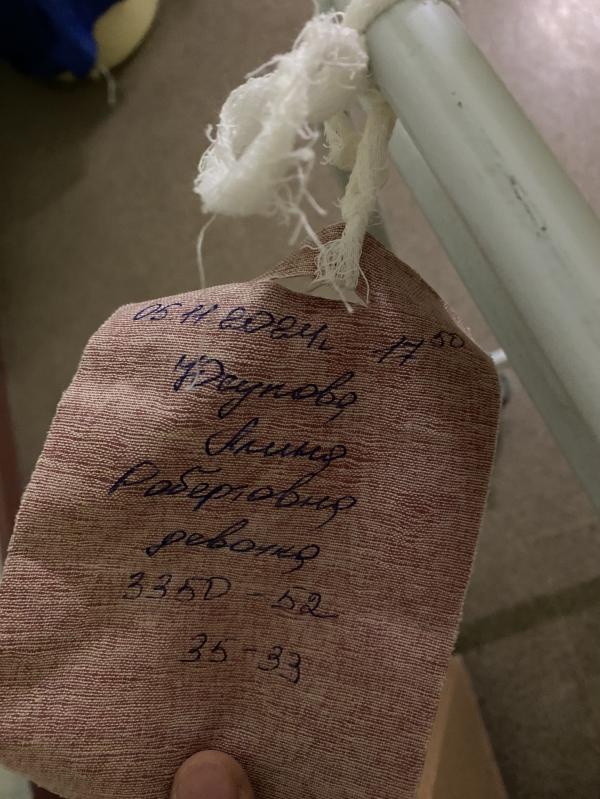 05 11 2024г. 17 50
Алина
Робертовна
девочка
3350 - 52
35 - 33